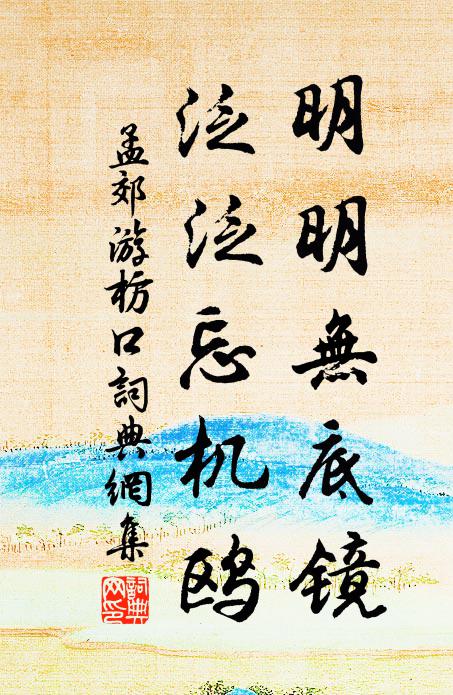 明明無底镜
泛泛忘机鸥
孟郊游枋口詞典網集